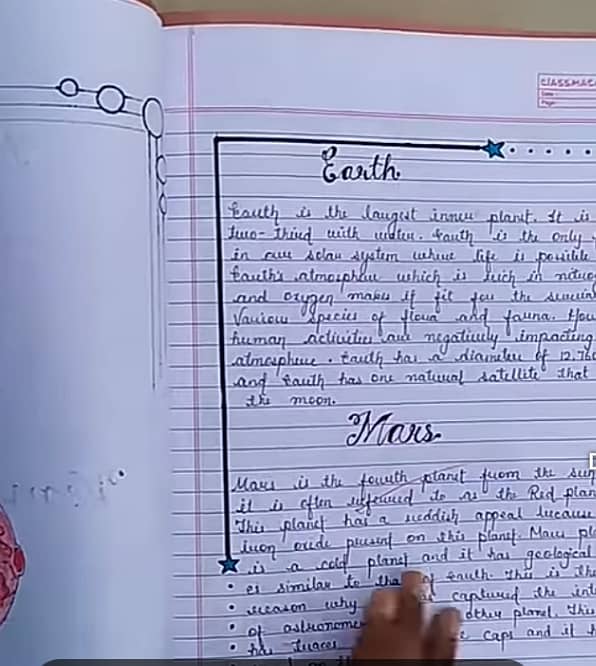 CLASSMATE
Date
Page
Earth
Earth is the largest inner planet. It is
two-third with water. Earth is the only
in our solar system where life is possible
Earth's atmosphere which is rich in
and oxygen makes it fit for the
Various species of flora and fauna.
human activities are negatively impacting
atmosphere. Earth has a diameter of 12.
and Earth has one natural satellite that
the moon.
Mars
Mars is the fourth planet from the sun
it is often referred to as the Red
This planet has a reddish appeal because
iron oxide present on this planet. Mars
is a cold planet and it has geological
es similar to of earth. This is the
reason why captured the
of other planet. This
has traces caps and it